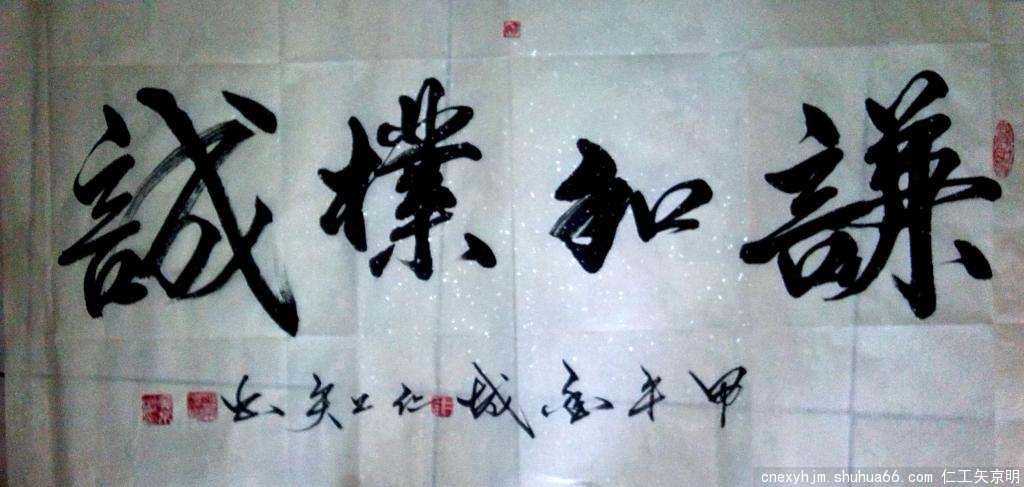 謙和樸誠
甲午金城仁工矢書
cnexyhjm.shuhua66.com 仁工矢京明